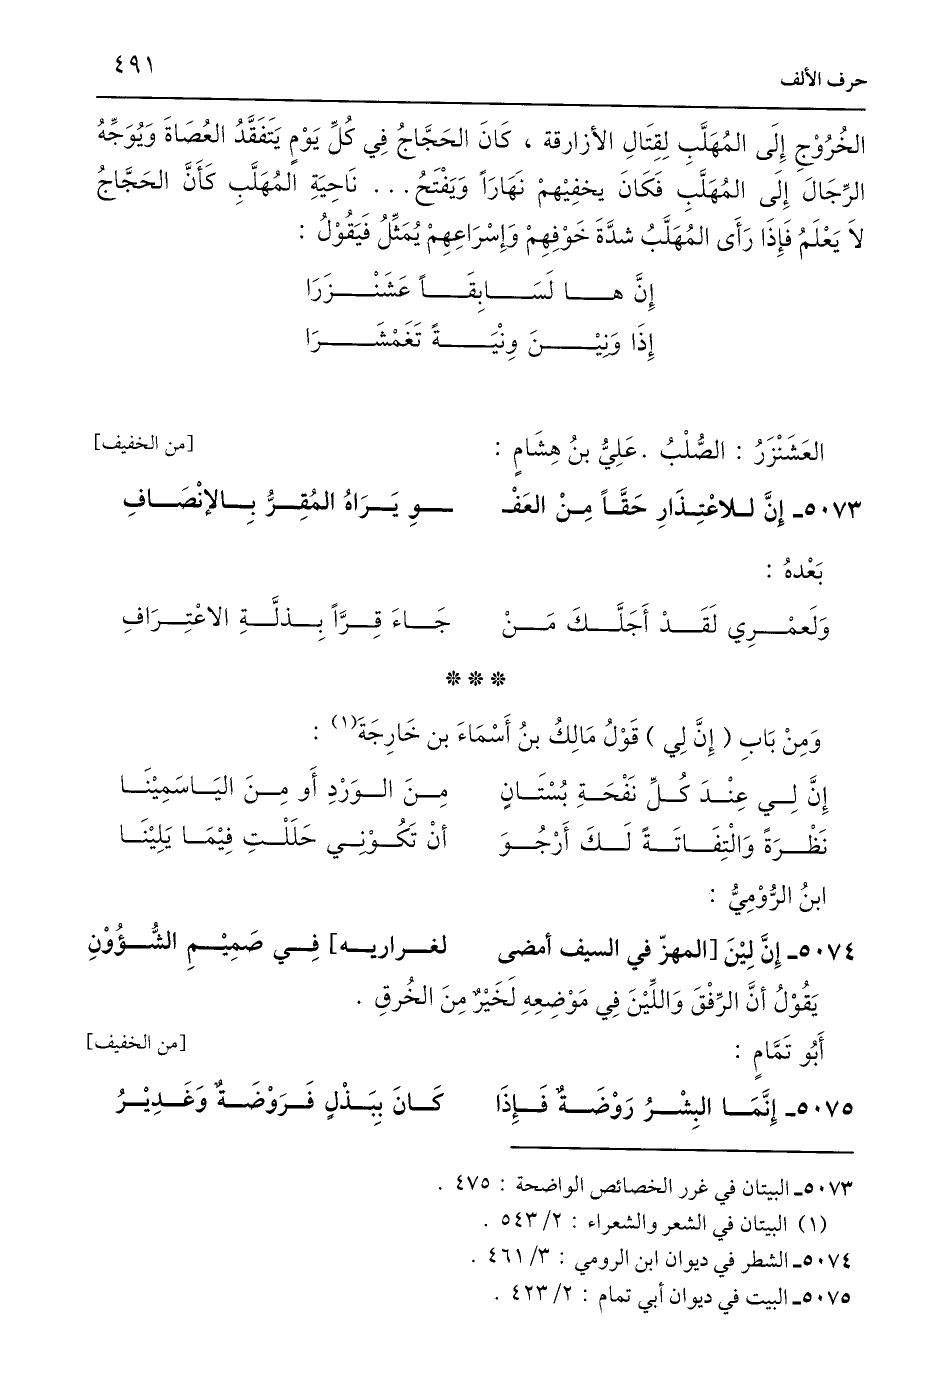 حرف الألف ٤٩١
الخُرُوْجِ إِلَى المُهَلَّبِ لِقِتَالِ الأزارقة ، كَانَ الحَجَّاجُ فِي كُلِّ يَوْمٍ يَتَفَقَّدُ العُصَاةَ وَيُوَجِّهُ
الرِّجَالَ إِلَى المُهَلَّبِ فَكَانَ يخفِيْهِمْ نَهَارَاً وَيَفْتَحُ... نَاحِيَةِ المُهَلَّبِ كَأَنَّ الحَجَّاجُ
لاَ يَعْلَمُ فَإِذَا رَأَى المُهَلَّبُ شدَّةَ خَوْفِهِمْ وَإِسْرَاعِهِمْ يُمَثِّلُ فَيَقُوْلُ :
إِنَّ هـا لَسَـابِقَـاً عَشَنْـزَرَا
إِذَا وَنِيْـنَ وِنْيَـةً تَغَمْشَـرَا
العَشَنْزَرُ : الصُّلْبُ . عَلِيُّ بنُ هِشَامٍ : [من الخفيف]
٥٠٧٣ـ إِنَّ لـلاعْتِـذَارِ حَقَّـاً مِـنْ العَفْـ ـوِ يَـرَاهُ المُقِـرُّ بِـالإنْصَـافِ
بَعْدهُ :
وَلَعمْـرِي لَقَـدْ أَجَلَّـكَ مَـنْ جَـاءَ قِـرَّاً بِـذلَّـةِ الاعْتِـرَافِ
* * *
وَمِنْ بَابِ ( إِنَّ لِي ) قَوْلُ مَالِكُ بنُ أَسْمَاءَ بن خَارِجَةَ(١) :
إِنَّ لِـي عِنْـدَ كُـلِّ نَفْحَـةِ بُسْتَـانٍ مِـنَ الـوَرْدِ أَو مِـنَ اليَـاسَمِيْنَـا
نَظْـرَةً وَالْتِفَـاتَـةً لَـكَ أَرْجُـوَ أنْ تَكُـوْنِـي حَلَلْـتِ فِيْمَـا يَلِيْنَـا
ابنُ الرُّوْمِيُّ :
٥٠٧٤ـ إِنَّ لِيْنَ [المهزّ في السيف أمضى لغـراريـه] فِـي صَمِيْـمِ الشُّـؤُوْنِ
يَقُوْلُ أنَّ الرِّفْقَ وَاللِّيْنَ فِي مَوْضِعِهِ لَخَيْرٌ مِنَ الخُرقِ .
أَبُو تَمَّامٍ : [من الخفيف]
٥٠٧٥ـ إِنَّمَـا البِشْـرُ رَوْضَـةٌ فَـإِذَا كَـانَ بِبَـذْلٍ فَـرَوْضَـةٌ وَغَـدِيْـرُ
٥٠٧٣ـ البيتان في غرر الخصائص الواضحة : ٤٧٥ .
(١) البيتان في الشعر والشعراء : ٢/ ٥٤٣ .
٥٠٧٤ـ الشطر في ديوان ابن الرومي : ٣/ ٤٦١ .
٥٠٧٥ـ البيت في ديوان أبي تمام : ٢/ ٤٢٣ .